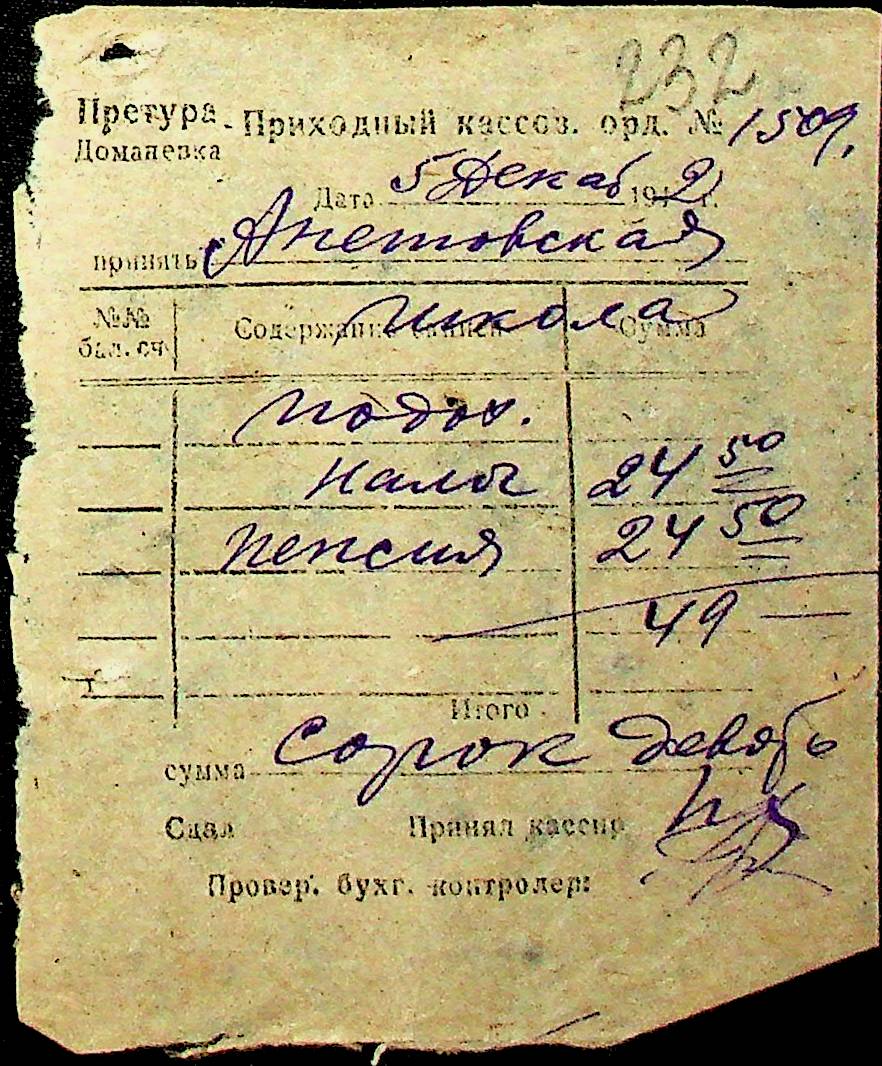 232
Претура - Приходный кассов. орд. № 1509.
Доманевка
Дата 5 Декаб 1942 г.
принять Анетовская
школа
№№ бал. сч. Содержание записи Сумма
подох.
налог 24 50
пенсия 24 50
49 —
Итого
сумма сорок девять
Сдал Принял кассир
Провер. бухг. контролер: